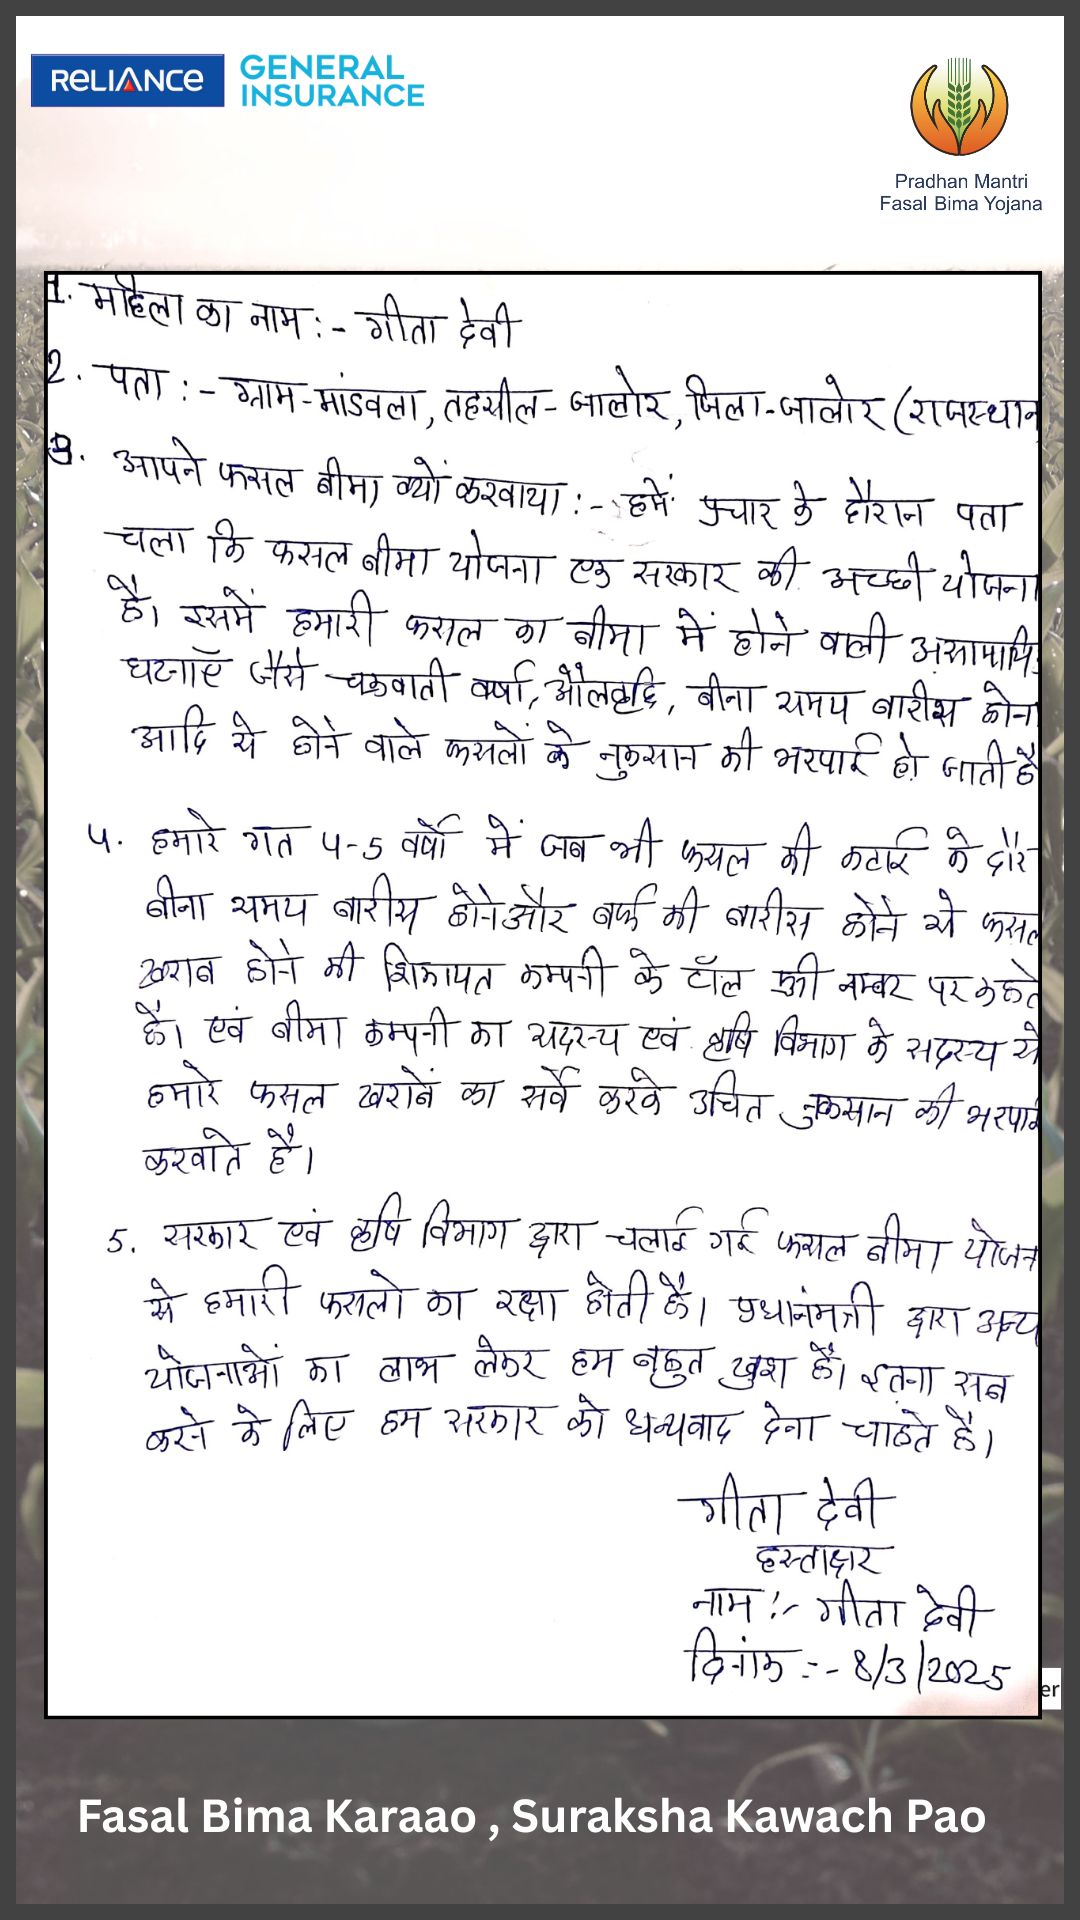 RELIANCE GENERAL INSURANCE
Pradhan Mantri
Fasal Bima Yojana
1. महिला का नाम :- गीता देवी
2. पता :- ग्राम-मांडवला, तहसील-जालोर, जिला-जालोर (राजस्थान
3. आपने फसल बीमा क्यों करवाया :- हमें प्रचार के दौरान पता
चला कि फसल बीमा योजना एक सरकार की अच्छी योजना
है। इसमें हमारी फसल का बीमा में होने वाली असामायि
घटनाएँ जैसे चक्रवाती वर्षा, औलावृद्दि, बीना समय बारीस होना
आदि से होने वाले फसलों के नुकसान की भरपाई हो जाती है
4. हमारे गत 4-5 वर्षो में जब भी फसल की कटाई के दौरा
बीना समय बारीस होने और बर्फ की बारीस होने से फसल
खराब होने की शिकायत कम्पनी के टॉल फ्री नम्बर पर कहते
है। एवं बीमा कम्पनी का सदस्य एवं कृषि विभाग के सदस्य से
हमारे फसल खराबें का सर्वे करके उचित नुकसान की भरपाई
करवाते है।
5. सरकार एवं कृषि विभाग द्वारा चलाई गई फसल बीमा योजन
से हमारी फसलो का रक्षा होती है। प्रधानंमत्री द्वारा अन्य
योजनाओं का लाभ लेकर हम बहुत खुश है। इतना सब
करने के लिए हम सरकार को धन्यवाद देना चाहते है।
गीता देवी
हस्ताक्षर
नाम :- गीता देवी
दिनांक :- 8/3/2025
er
Fasal Bima Karaao , Suraksha Kawach Pao